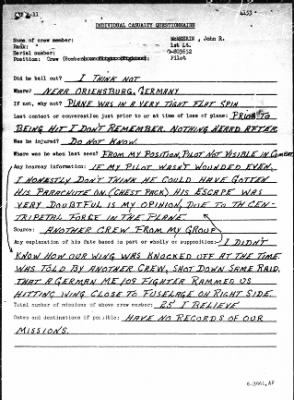 INDIVIDUAL CASUALTY QUESTIONNAIRE
Name of crew member: John R.
Rank: 1st Lt.
Serial number:
Position: Crew (Bomber Pilot
Did he bail out? I THINK NOT
Where? NEAR ORIENSBURG, GERMANY
If not, why not? PLANE WAS IN A VERY TIGHT FLAT SPIN
Last contact or conversation just prior to or at time of loss of plane: PRIOR TO
BEING HIT I DON'T REMEMBER. NOTHING HEARD AFTER
Was he injured? DO NOT KNOW.
Where was he when last seen? FROM MY POSITION, PILOT NOT VISIBLE IN COMBAT.
Any hearsay information: IF MY PILOT WASN'T WOUNDED EVEN,
I HONESTLY DON'T THINK HE COULD HAVE GOTTEN
HIS PARACHUTE ON. (CHEST PACK) HIS ESCAPE WAS
VERY DOUBTFUL IS MY OPINION, DUE TO TH CEN-
TRIPETAL FORCE IN THE PLANE
Source: ANOTHER CREW FROM MY GROUP
Any explanation of his fate based in part or wholly on supposition: I DIDN'T
KNOW HOW OUR WING WAS KNOCKED OFF AT THE TIME
WAS TOLD BY ANOTHER CREW, SHOT DOWN SAME RAID.
THAT A GERMAN ME 109 FIGHTER RAMMED US
HITTING WING CLOSE TO FUSELAGE ON RIGHT SIDE.
Total number of missions of above crew member: 25 I BELIEVE
Dates and destinations if possible: HAVE NO RECORDS OF OUR
MISSIONS.
6-3861,AF